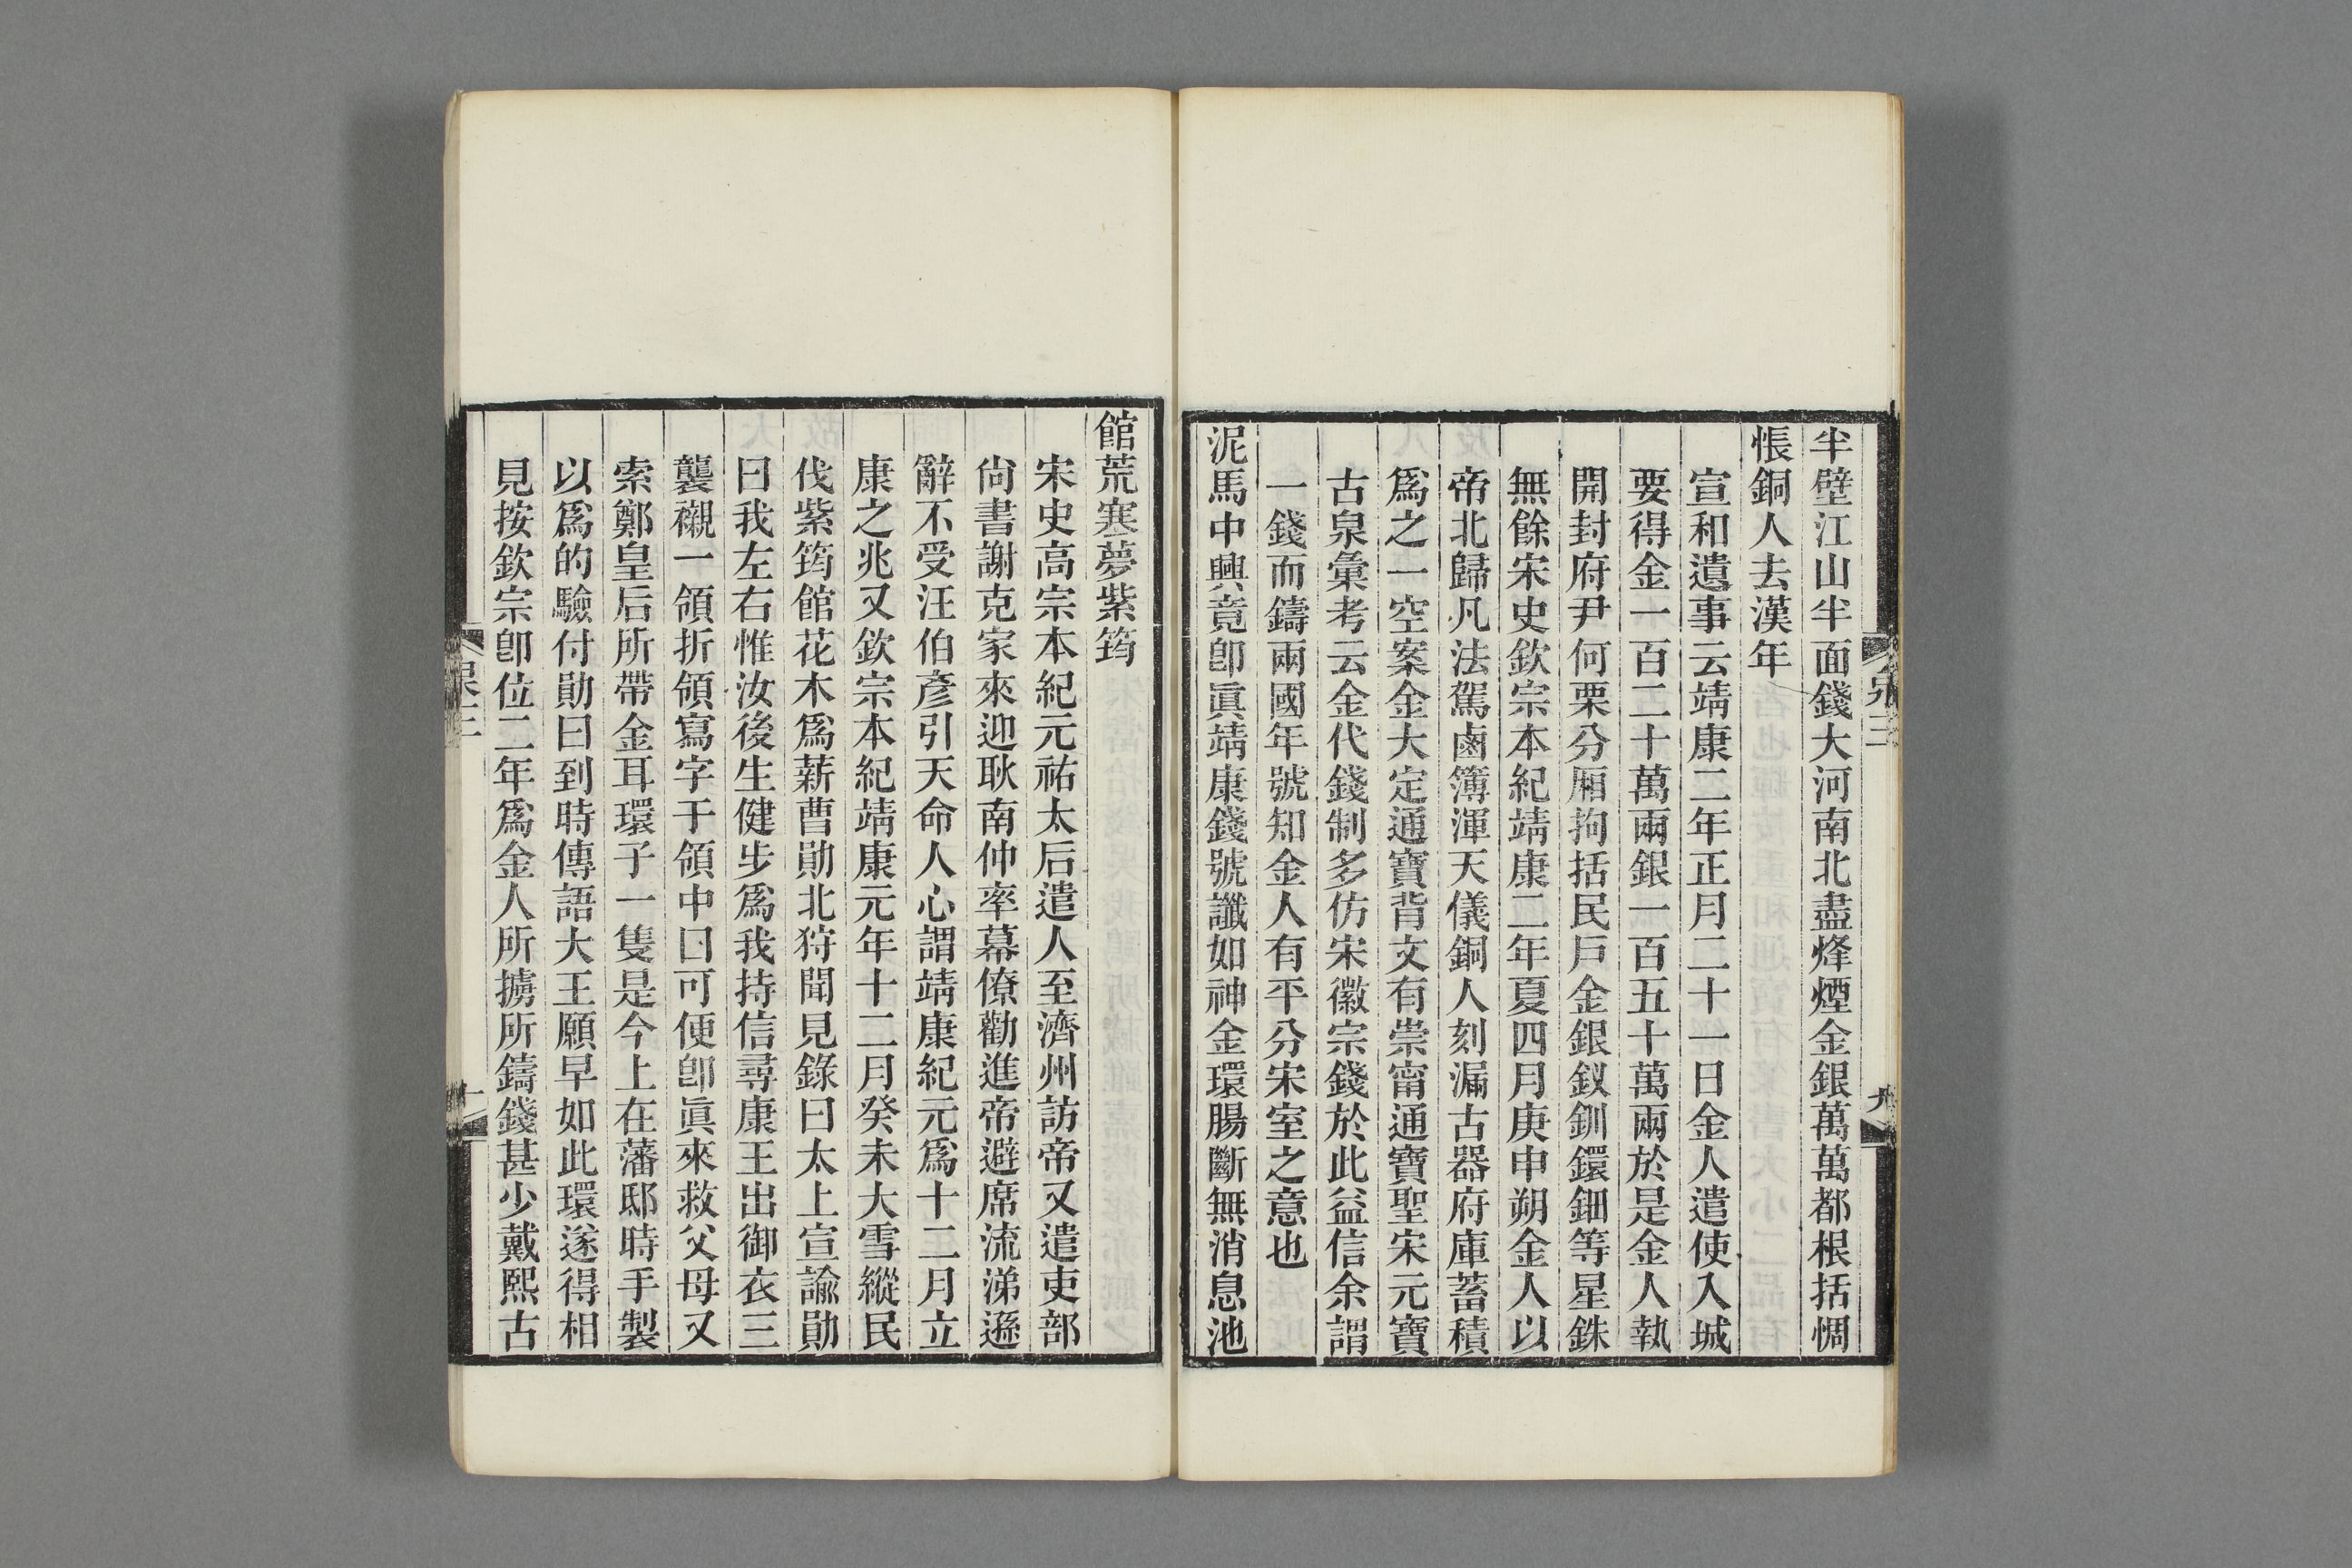 半壁江山半面錢大河南北盡烽煙金銀萬萬都根括惆
悵銅人去漢年
宣和遺事云靖康二年正月二十一日金人遣使入城
要得金一百二十萬兩銀一百五十萬兩於是金人執
開封府尹何栗分廂拘括民戶金銀釵釧鐶鈿等星銖
無餘宋史欽宗本紀靖康二年夏四月庚申朔金人以
帝北歸凡法駕鹵簿渾天儀銅人刻漏古器府庫蓄積
爲之一空案金大定通寶背文有崇甯通寶聖宋元寶
古泉彙考云金代錢制多仿宋徽宗錢於此益信余謂
一錢而鑄兩國年號知金人有平分宋室之意也
泥馬中興竟卽眞靖康錢號讖如神金環腸斷無消息池
館荒寒夢紫筠
宋史高宗本紀元祐太后遣人至濟州訪帝又遣吏部
尙書謝克家來迎耿南仲率幕僚勸進帝避席流涕遜
辭不受汪伯彥引天命人心謂靖康紀元爲十二月立
康之兆又欽宗本紀靖康元年十二月癸未大雪縱民
伐紫筠館花木爲薪曹勛北狩聞見錄曰太上宣諭勛
曰我左右惟汝後生健步爲我持信尋康王出御衣三
襲襯一領折領寫字于領中曰可便卽眞來救父母又
索鄭皇后所帶金耳環子一隻是今上在藩邸時手製
以爲的驗付勛曰到時傳語大王願早如此環遂得相
見按欽宗卽位二年爲金人所擄所鑄錢甚少戴熙古